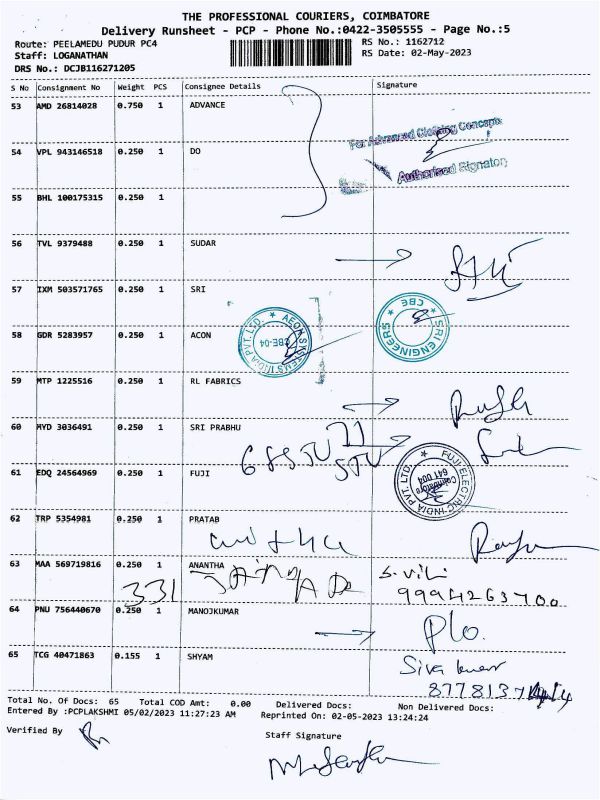 THE PROFESSIONAL COURIERS, COIMBATORE
Delivery Runsheet - PCP - Phone No.:0422-3505555 - Page No.:5
Route: PEELAMEDU PUDUR PC4
RS No.: 1162712
Staff: LOGANATHAN
RS Date: 02-May-2023
DRS No.: DCJB116271205
S No Consignment No Weight PCS Consignee Details Signature
53 AMD 26814028 0.750 1 ADVANCE
For Advanced Clothing Concepts
54 VPL 943146518 0.250 1 DO
Authorised Signatory
55 BHL 100175315 0.250 1
56 TVL 9379488 0.250 1 SUDAR
57 IXM 503571765 0.250 1 SRI
SRI ENGINEERS ★ CBE ★
58 GDR 5283957 0.250 1 ACON
INDIA PVT. LTD. ★ CBE-04
59 MTP 1225516 0.250 1 RL FABRICS
60 MYD 3036491 0.250 1 SRI PRABHU
61 EDQ 24564969 0.250 1 FUJI
FUJI ELECTRIC INDIA PVT. LTD. ★ Coimbatore 641 004
62 TRP 5354981 0.250 1 PRATAB
63 MAA 569719816 0.250 1 ANANTHA
331
9994263700
64 PNU 756440670 0.250 1 MANOJKUMAR
65 TCG 40471863 0.155 1 SHYAM
Siva kumar
Total No. Of Docs: 65 Total COD Amt: 0.00 Delivered Docs: Non Delivered Docs:
Entered By :PCPLAKSHMI 05/02/2023 11:27:23 AM Reprinted On: 02-05-2023 13:24:24
Verified By
Staff Signature